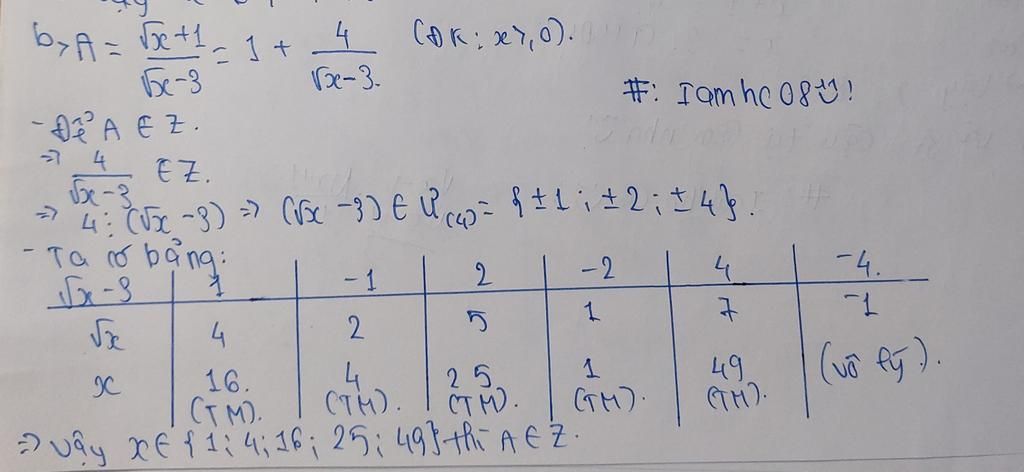 b, A = √x+1 / √x-3 = 1 + 4 / √x-3. (ĐK: x ≥ 0).
#: Iamhc08!
- Để A ∈ Z.
=> 4 / √x-3 ∈ Z.
=> 4 ⋮ (√x -3) => (√x -3) ∈ Ư(4) = {±1; ±2; ±4}.
- Ta có bảng:
√x-3 1 -1 2 -2 4 -4.
√x 4 2 5 1 7 -1
x 16. (TM). 4 (TM). 25 (TM). 1 (TM). 49 (TM). (vô lý).
=> Vậy x ∈ {1; 4; 16; 25; 49} thì A ∈ Z.